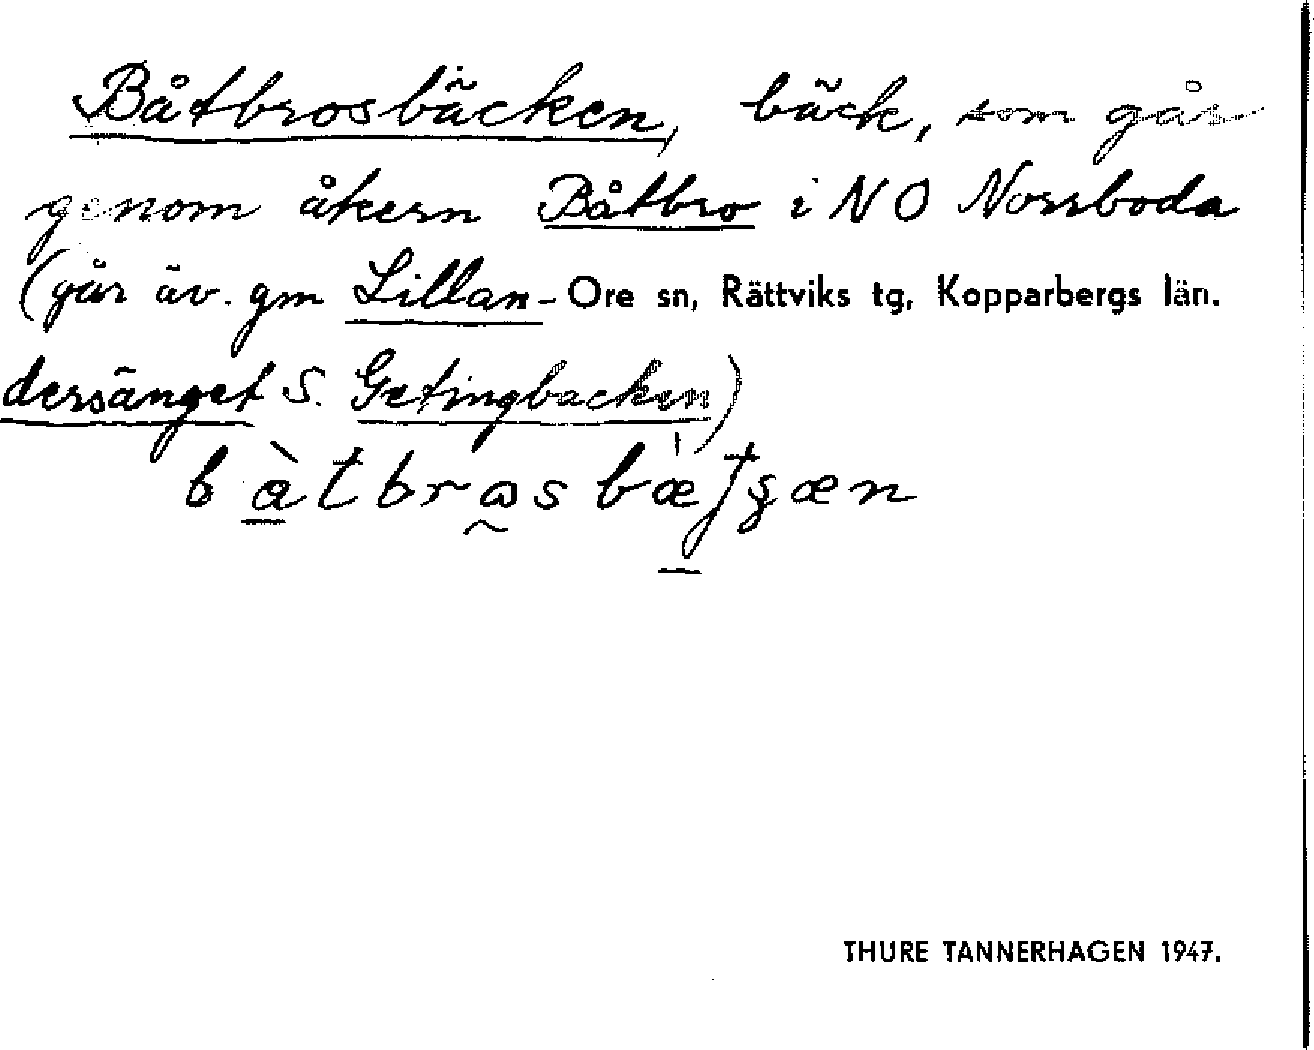 Båtbrosbäcken, bäck, som går
genom åkern Båtbro i NO Norrboda
(går äv. gm Lillan- Ore sn, Rättviks tg, Kopparbergs län.
dersänget S. Getingbacken)
THURE TANNERHAGEN 1947.